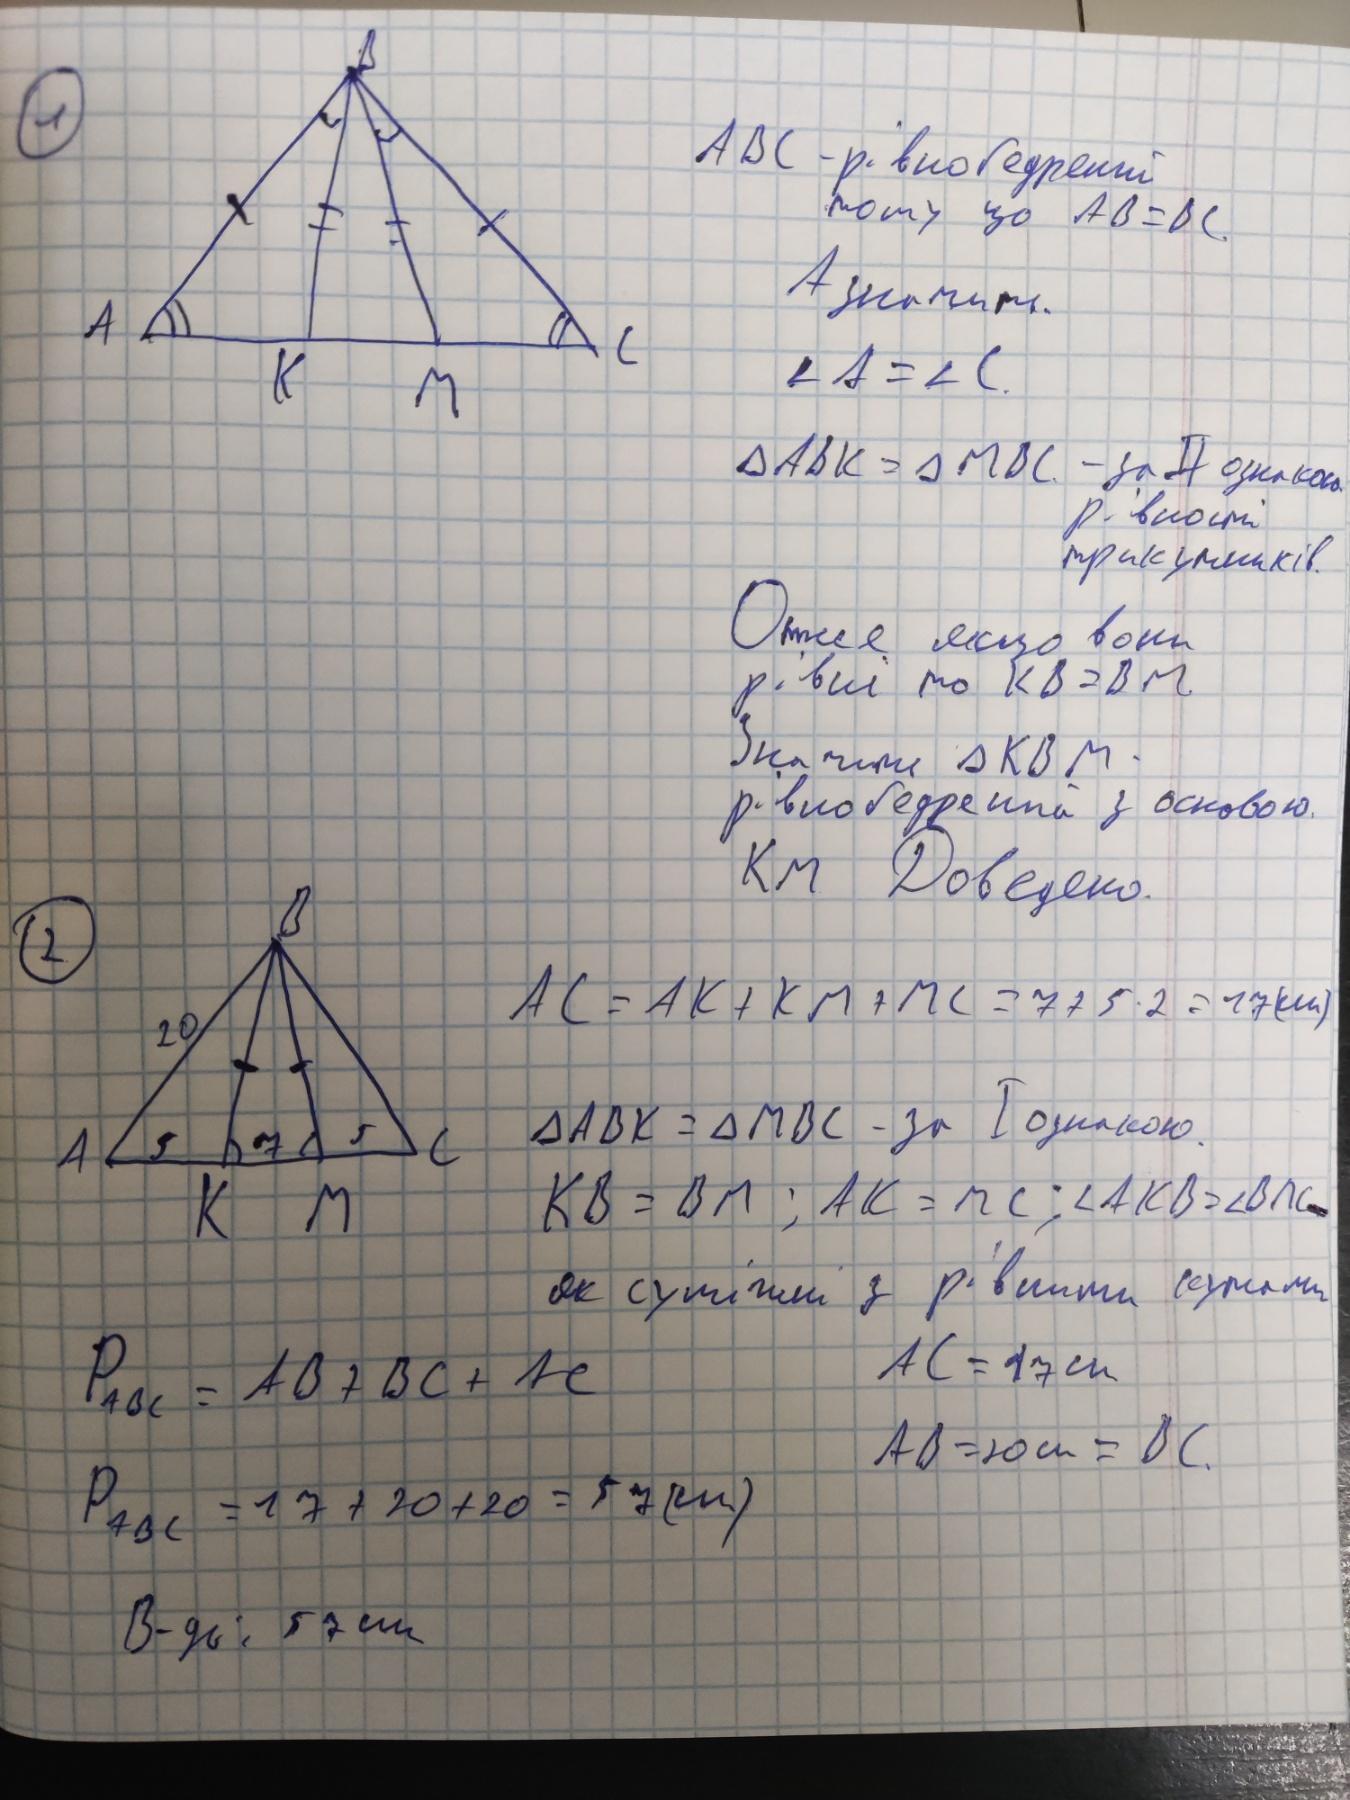 1
B
A
K
M
C
ABC - рівнобедренний
тому що AB = BC.
А значить.
∠A = ∠C.
ΔABK = ΔMBC. - за II ознакою
рівності
трикутників.
Отже якщо вони
рівні то KB = BM
Значить ΔKBM -
рівнобедренний з основою.
KM Доведено.
2
B
20
A
5
7
5
C
K
M
AC = AK + KM + MC = 7 + 5 · 2 = 17 (см)
ΔABK = ΔMBC - за I ознакою.
KB = BM ; AK = MC ; ∠AKB = ∠BMC
як суміжні з рівними кутами
P ABC = AB + BC + AC
AC = 17 см
AB = 20 см = BC.
P ABC = 17 + 20 + 20 = 57 (см)
В-дь: 57 см